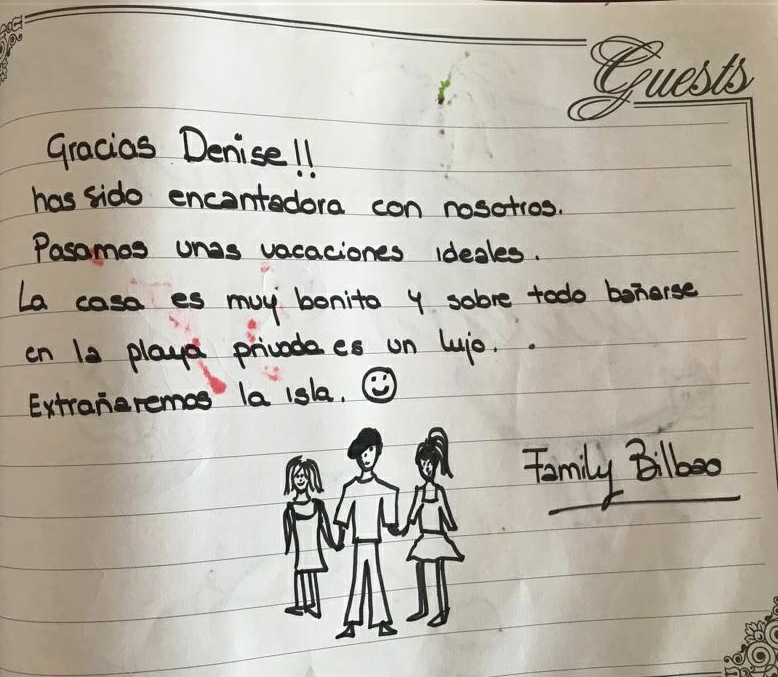 Guests
Gracias Denise!!
has sido encantadora con nosotros.
Pasamos unas vacaciones ideales.
La casa es muy bonita y sobre todo bañarse
en la playa privada es un lujo. .
Extrañaremos la isla. ☺
Family Bilbao